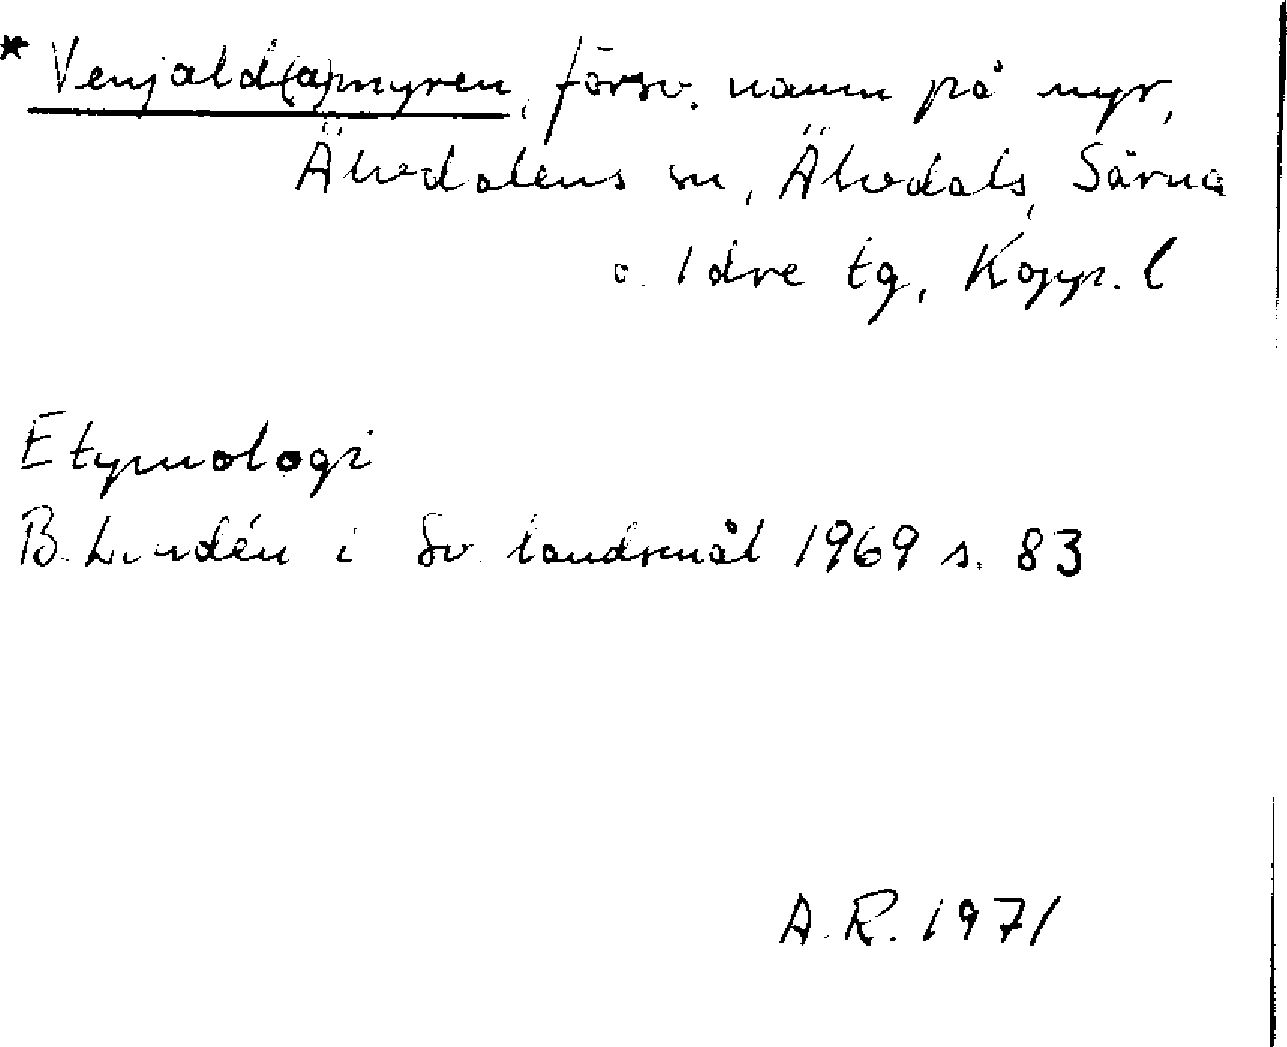 * Venjald(a)myren, försv. namn på myr,
Älvdalens sn, Älvdals, Särna
o. Idre tg, Kopp. l
Etymologi
B. Lindén i Sv. landsmål 1969 s. 83
A.R. 1971